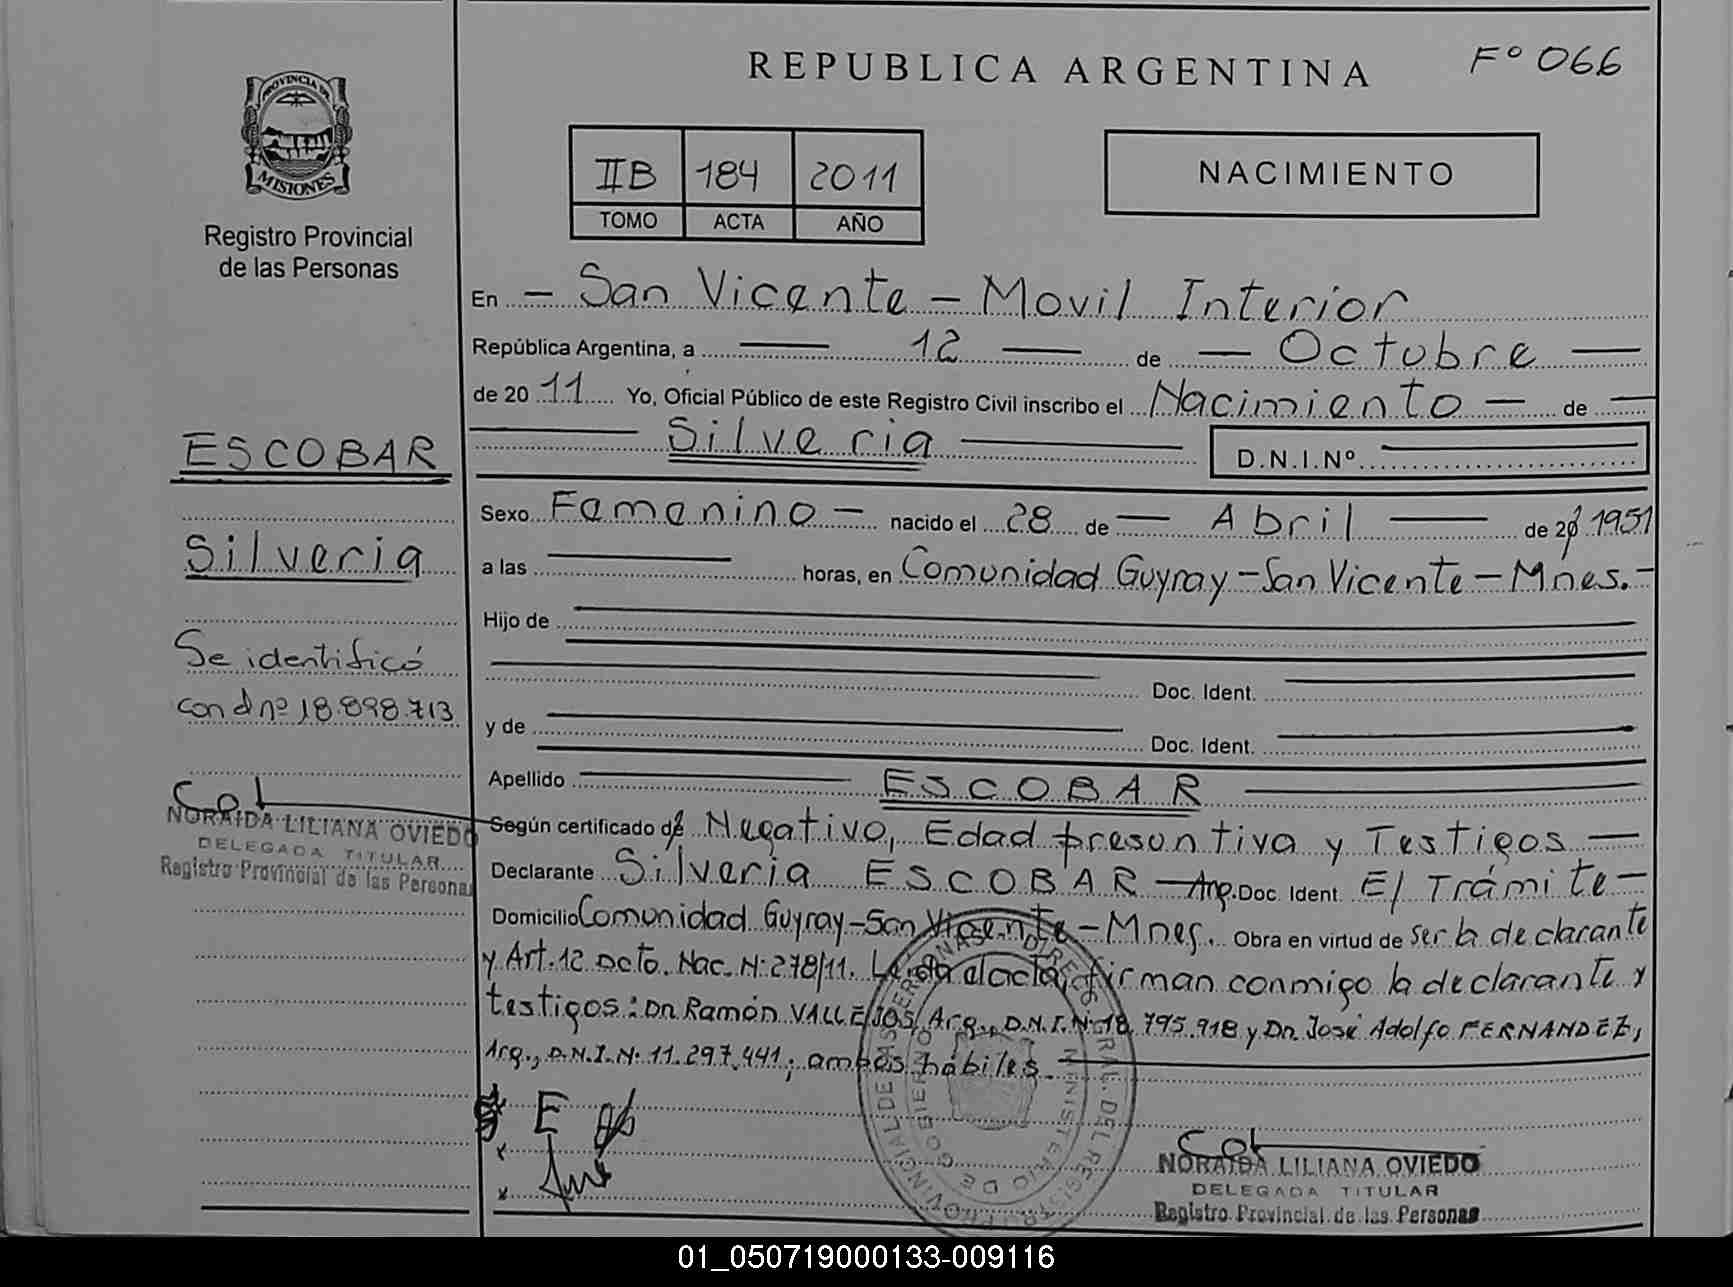 REPUBLICA ARGENTINA
Fº 066
PROVINCIA DE
MISIONES
Registro Provincial
de las Personas
IIB 184 2011
TOMO ACTA AÑO
NACIMIENTO
En - San Vicente - Movil Interior
República Argentina, a 12 de Octubre
de 2011 Yo, Oficial Público de este Registro Civil inscribo el Nacimiento - de
Silveria D.N.I.Nº
Sexo Femenino - nacido el 28 de Abril de 20 1951
a las horas, en Comunidad Guyray - San Vicente - Mnes. -
Hijo de
Doc. Ident.
y de
Doc. Ident.
Apellido ESCOBAR
Según certificado de Negativo, Edad presuntiva y Testigos
Declarante Silveria ESCOBAR - Arg. Doc. Ident. E/ Trámite -
Domicilio Comunidad Guyray - San Vicente - Mnes. Obra en virtud de ser la declarante
y Art. 12 Dcto. Nac. Nº 278/11. Leída el acta, firman conmigo la declarante y
testigos: Dn Ramón VALLEJOS, Arg., D.N.I. Nº 18.795.918 y Dn. José Adolfo FERNANDEZ,
Arg., D.N.I. Nº 11.297.441; ambos hábiles.
E
NORAIDA LILIANA OVIEDO
DELEGADA TITULAR
Registro Provincial de las Personas
ESCOBAR
Silveria
Se identificó
con d nº 18.898.713
NORAIDA LILIANA OVIEDO
DELEGADA TITULAR
Registro Provincial de las Persona
01_050719000133-009116